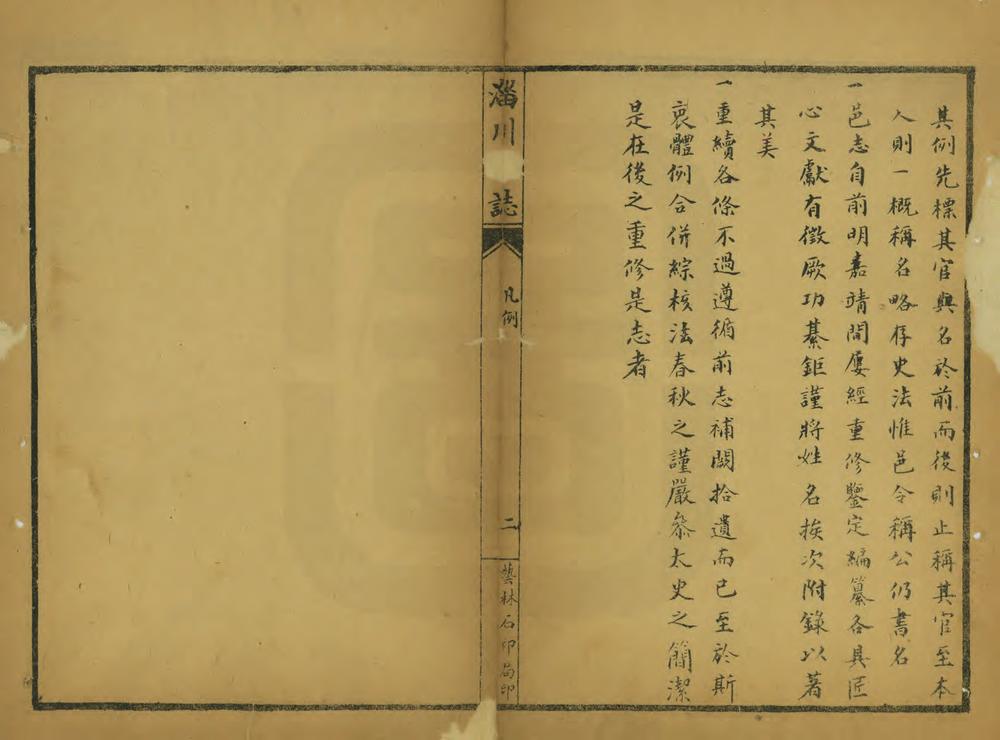 其例先標其官與名於前而後則止稱其官至本
人則一概稱名略存史法惟邑令稱公仍書名
一邑志自前明嘉靖間屢經重修鑒定編纂各具匠
心文獻有徵厥功綦鉅謹將姓名挨次附錄以著
其美
一重續各條不過遵循前志補闕拾遺而已至於斯
裒體例合併綜核法春秋之謹嚴叅太史之簡潔
是在後之重修是志者
淄川 誌
凡例
二
藝林石印局印